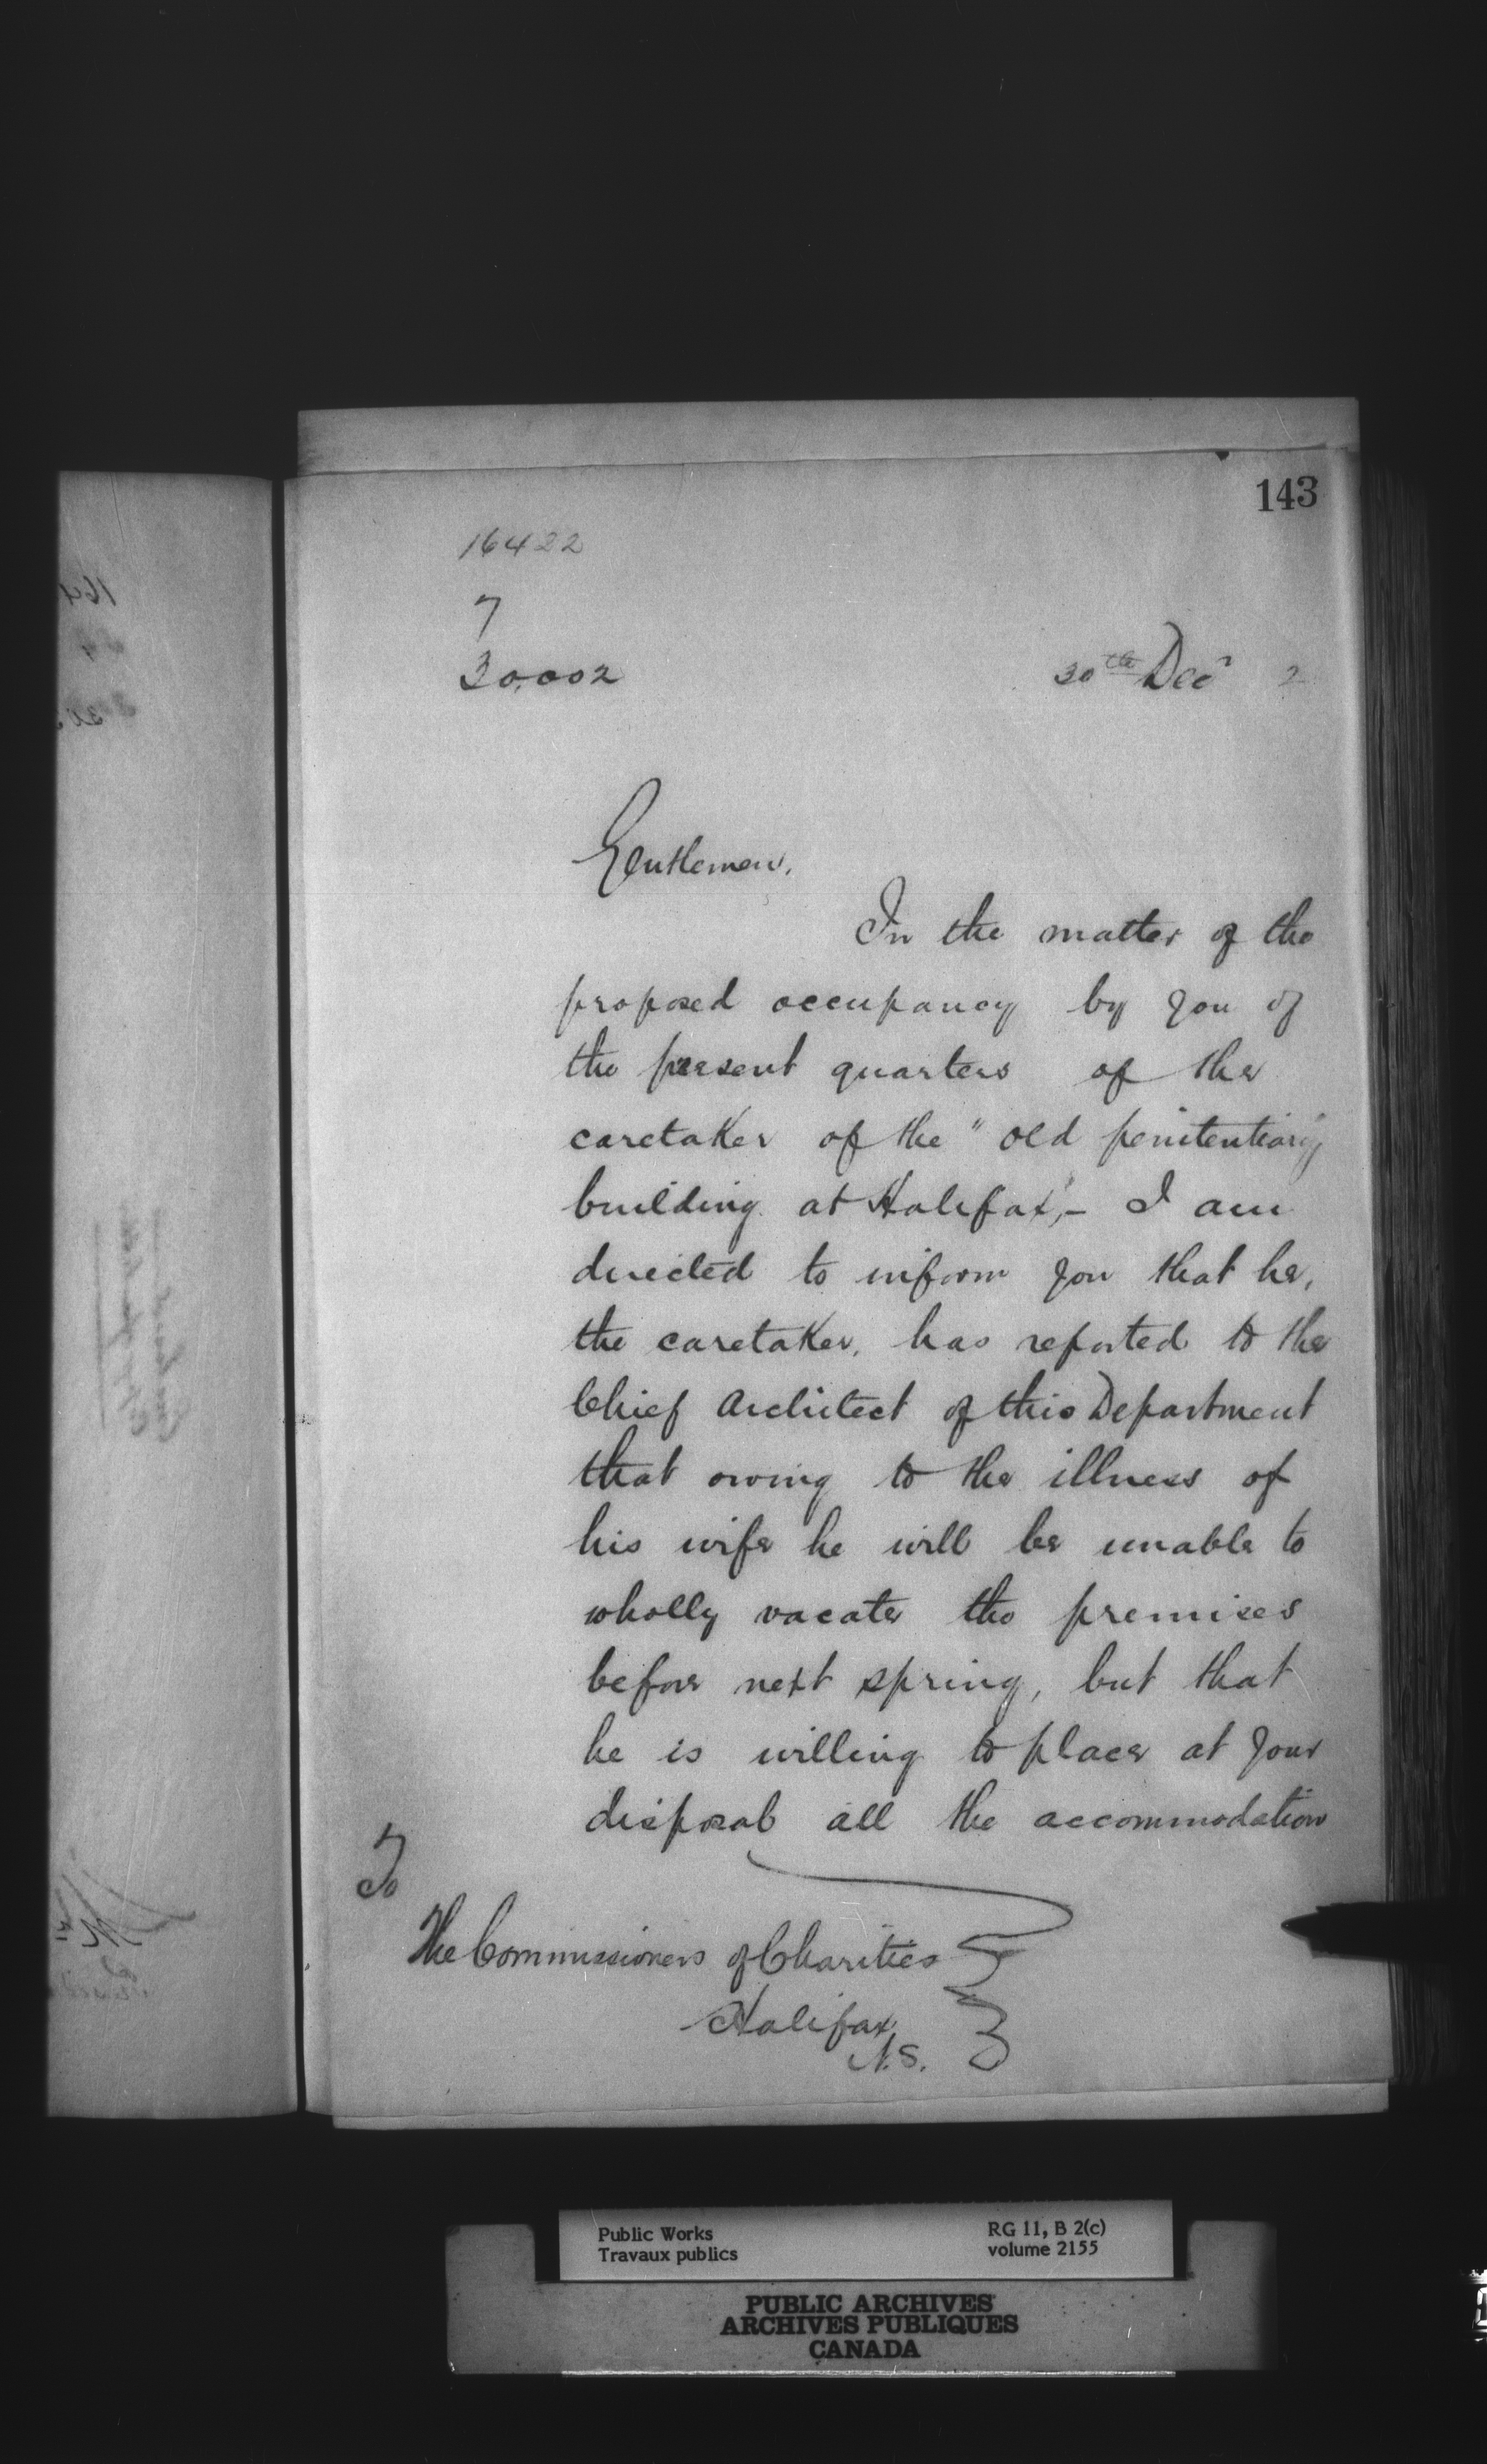 143
16422
7
30,002
30th Decr 2
Gentlemen,
In the matter of the
proposed occupancy by you of
the present quarters of the
caretaker of the "old penitentiary
building at Halifax", - I am
directed to inform you that he,
the caretaker, has reported to the
Chief Architect of this Department
that owing to the illness of
his wife he will be unable to
wholly vacate the premises
before next spring, but that
he is willing to place at your
disposal all the accommodation
To
The Commissioners of Charities
Halifax
N.S.
Public Works
Travaux publics
RG 11, B 2(c)
volume 2155
PUBLIC ARCHIVES
ARCHIVES PUBLIQUES
CANADA